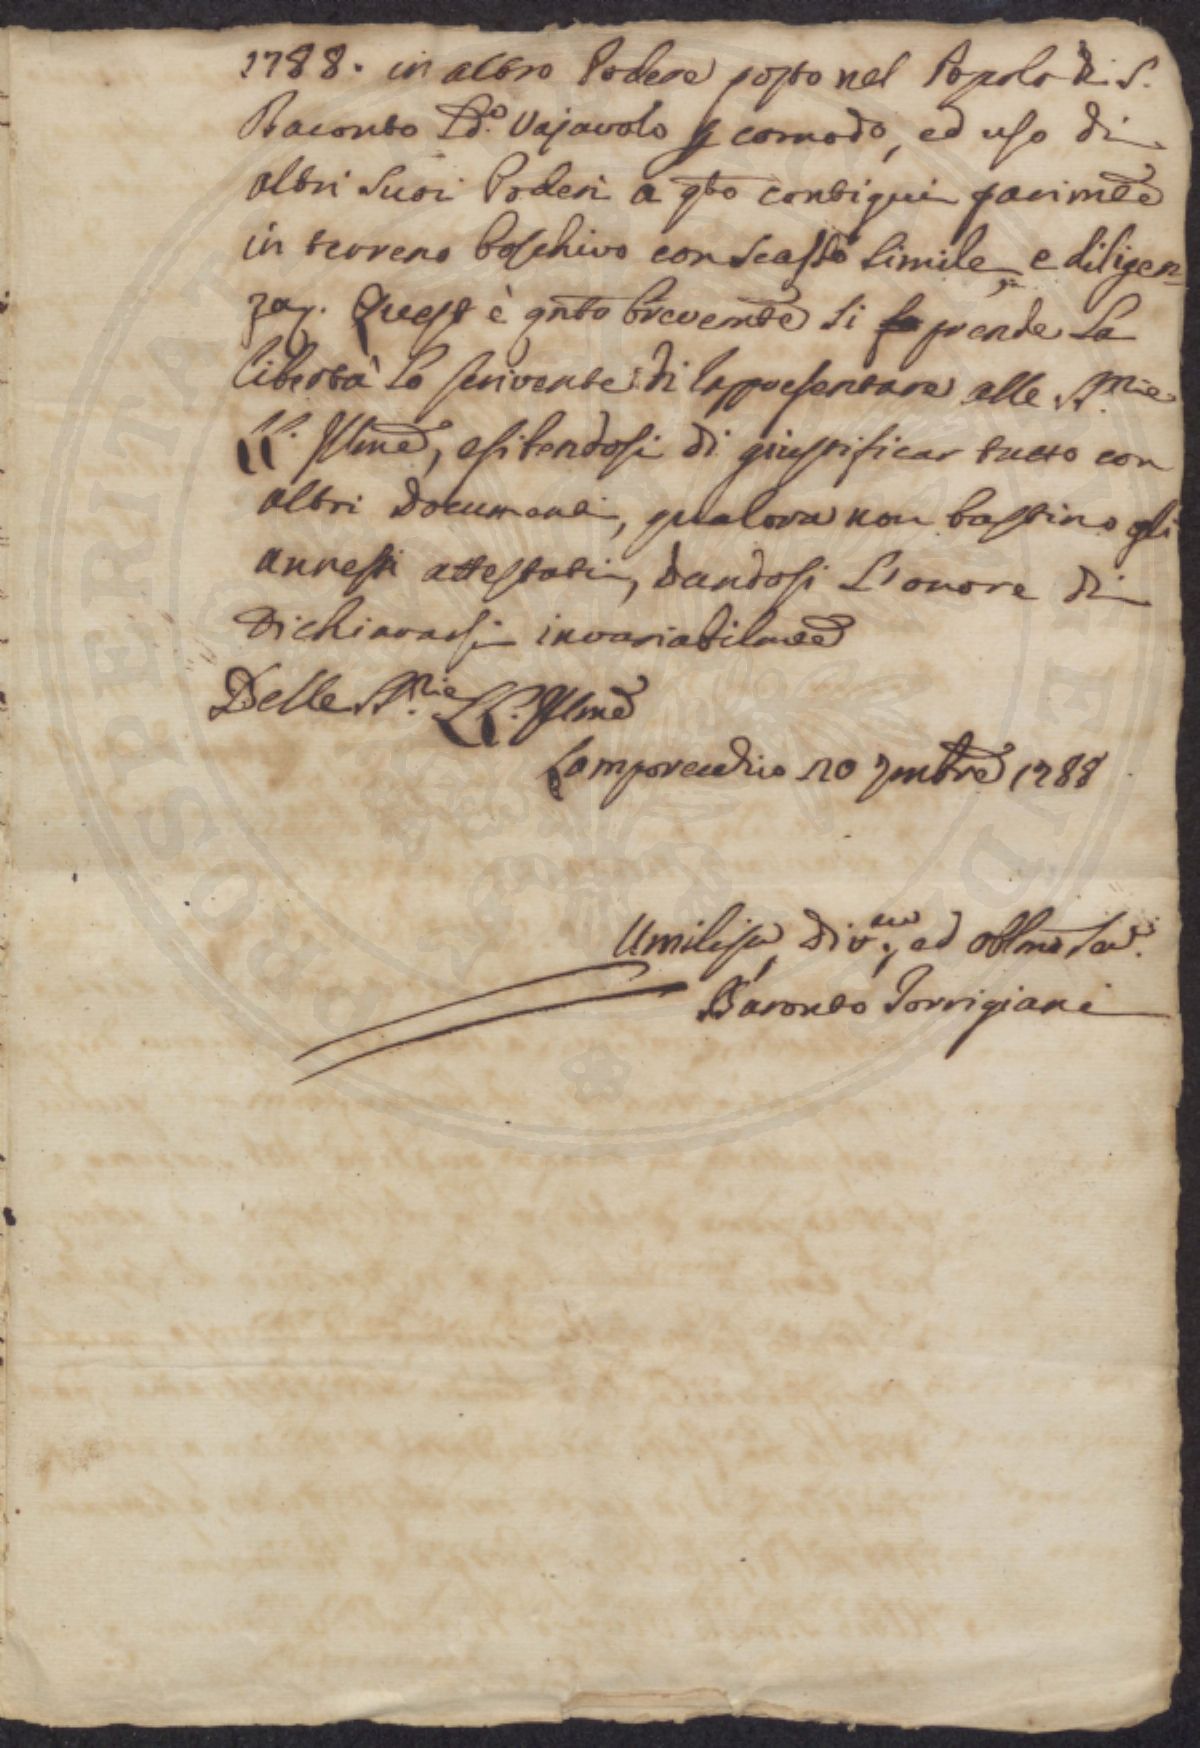 1788. in altro Podere posto nel Popolo di S.
Baronto L.do Vajavolo p comodo, ed uso di
altri suoi Poderi a qto contigui parimte
in terreno boschivo con scasso simile, e diligen-
za. Quest è qnto brevemte si prende la
libertà lo scrivente di rappresentare alle
LL. Illme, esibendosi di giustificar tutto con
altri documenti, qualora non bastino gli
annessi attestati, dandosi l'onore di
dichiararsi invariabilmte
Delle LL. Illme
Lamporecchio 20 7mbre 1788
Umiliss, div.mo, ed obblmo Ser.
Baronto Torrigiani
PROSPERITATI